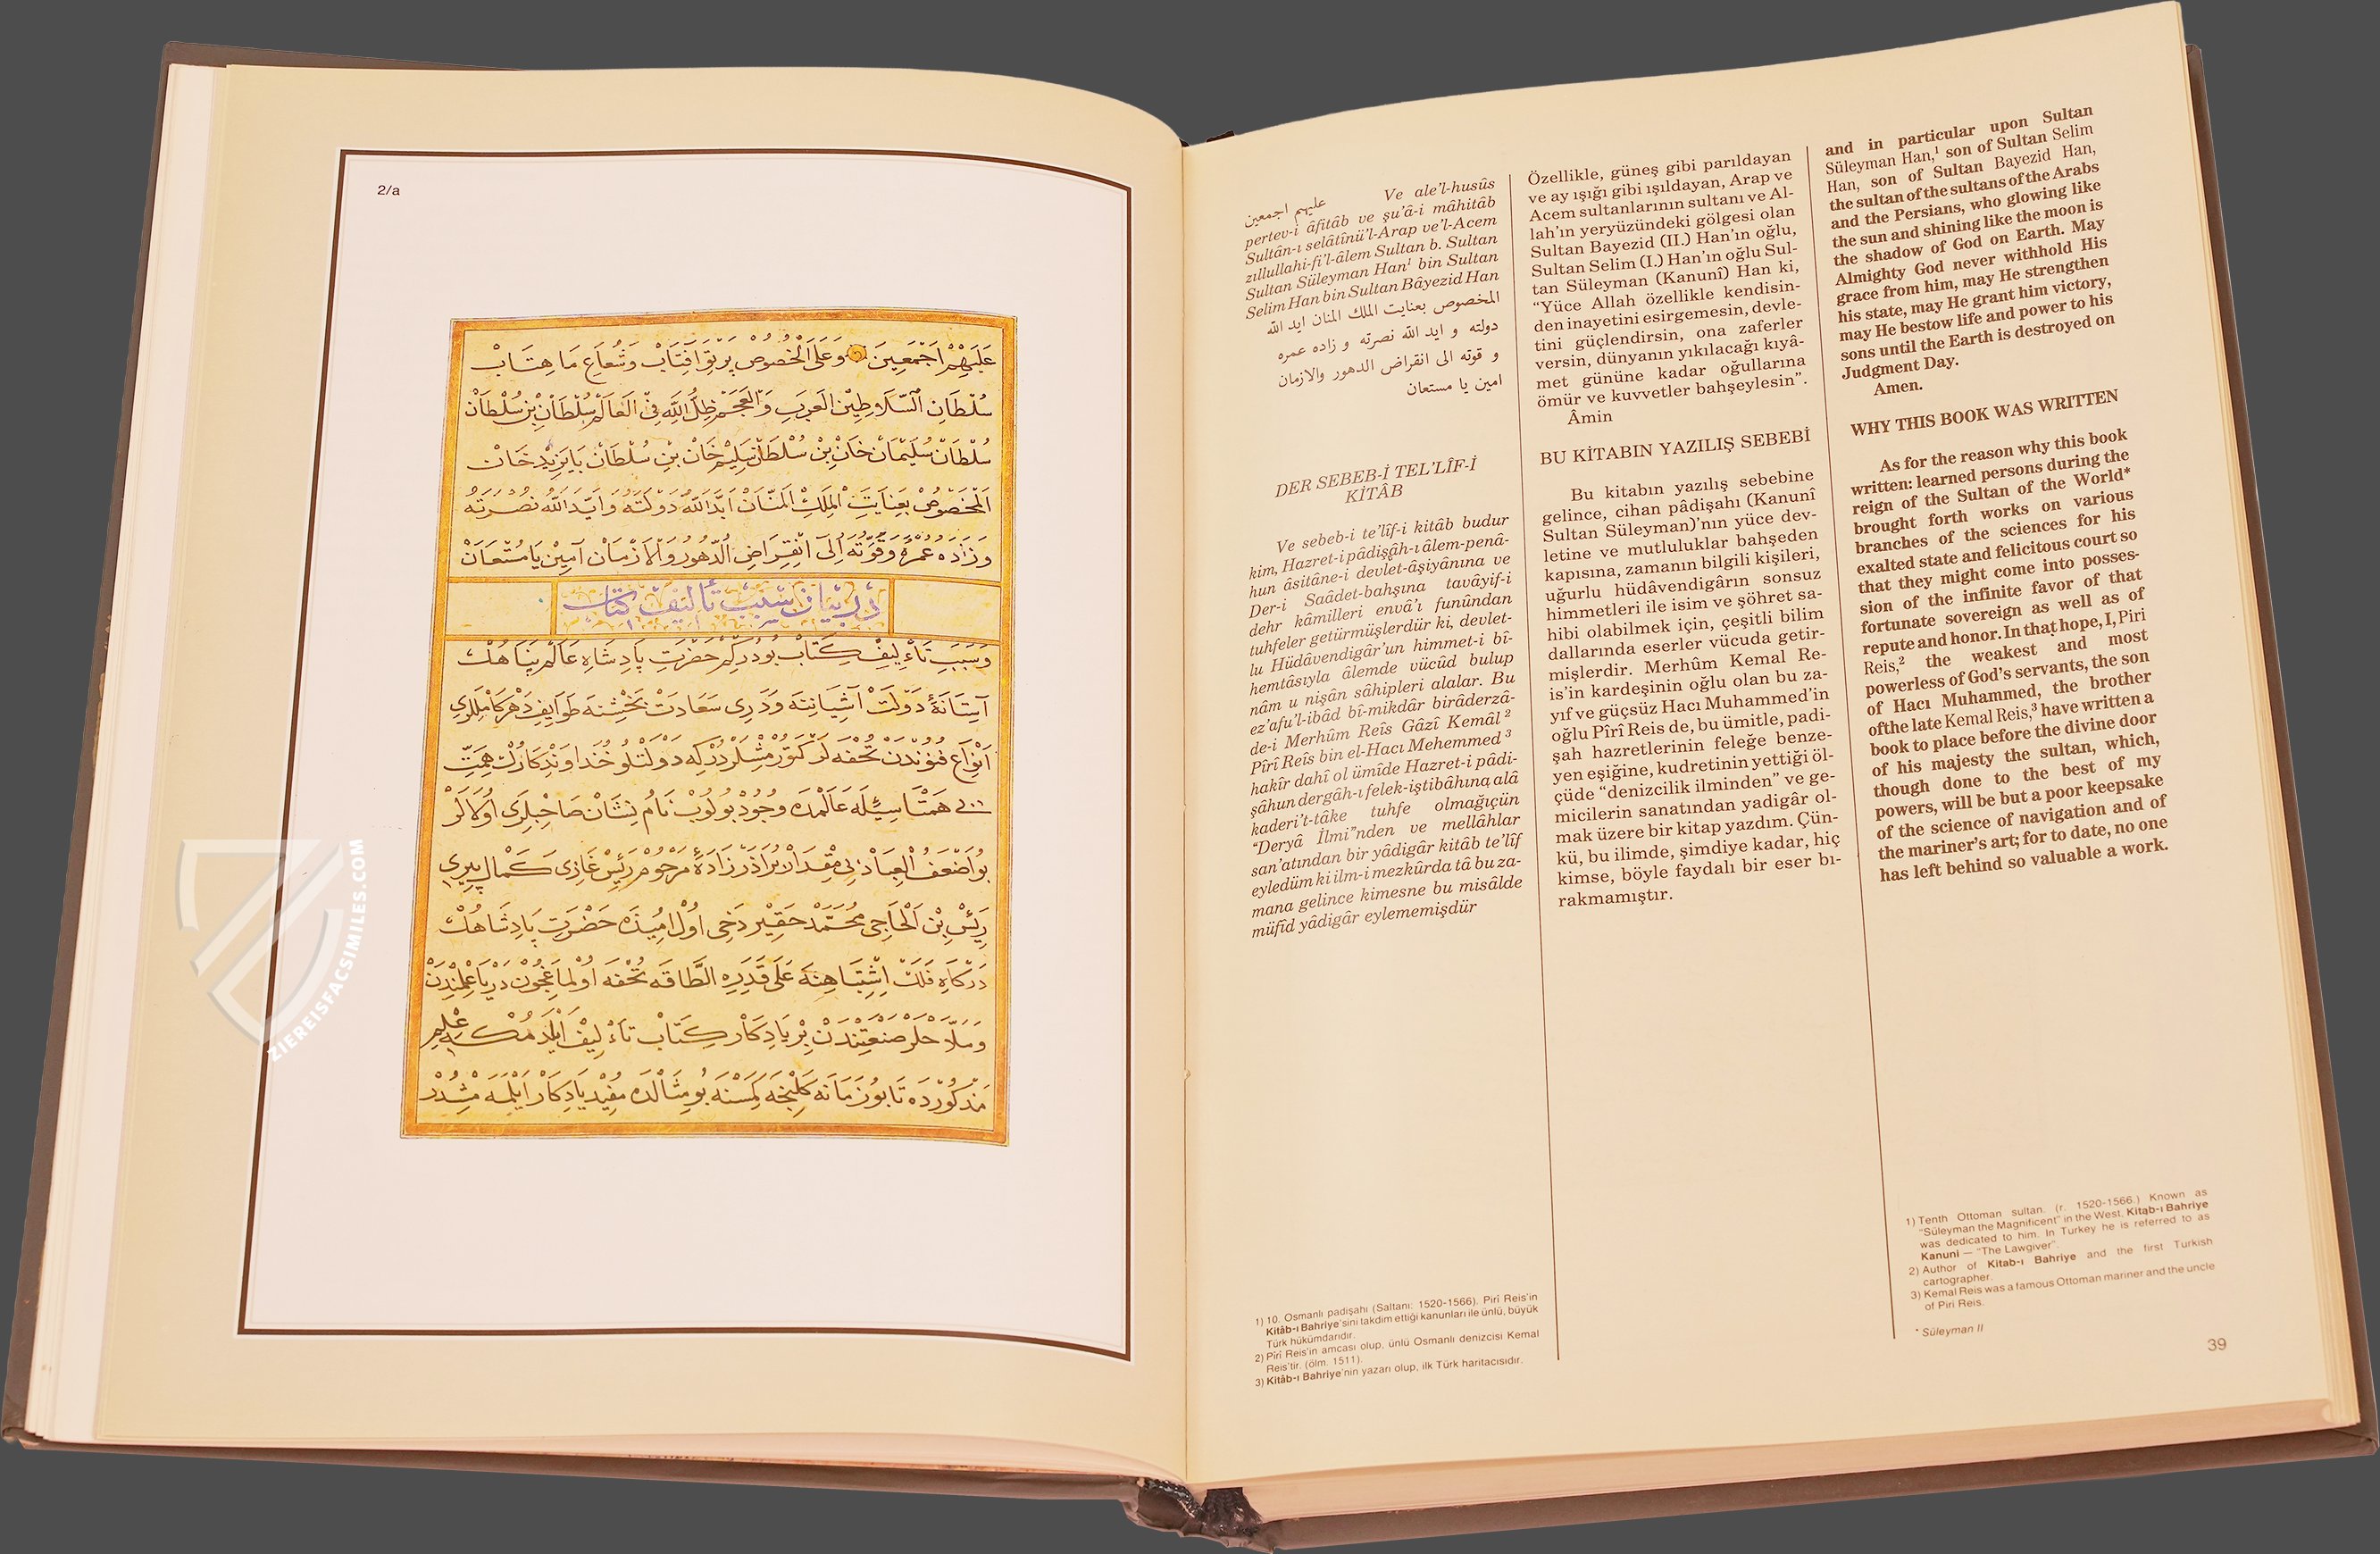 2/a
عَلَيْهِمْ اَجْمَعِينَ وَعَلَى الْخُصُوصْ پَرْتَوِ اٰفِتَابْ وَشُعَاعِ مَاهِتَابْ
سُلْطَانِ السَّلَاطِيْنِ الْعَرَبِ وَالْعَجَمْ ظِلُّ اللّٰهِ فِي الْعَالَمْ سُلْطَانْ بْنِ سُلْطَانْ
سُلْطَانْ سُلَيْمَانْ خَانْ بِنْ سُلْطَانْ سَلِيْمْ خَانْ بِنْ سُلْطَانْ بَايَزِيْدْ خَانْ
اَلْمَخْصُوصْ بِعِنَايَتِ الْمَلِكِ الْمَنَّانْ اَيَّدَ اللّٰهُ دَوْلَتَهُ وَاَيَّدَ اللّٰهُ نُصْرَتَهُ
وَزَادَهُ عُمْرَهُ وَقُوَّتَهُ اِلَى انْقِرَاضِ الدُّهُورْ وَالْاَزْمَانْ اٰمِيْنْ يَا مُسْتَعَانْ
در بیان سبب تألیف کتاب
وَسَبَبِ تَاْلِيْفِ كِتَابْ بُودُرْكِمْ حَضْرَتِ پَادِشَاهِ عَالَمْ پَنَاهُكْ
اٰسِتَانَۀِ دَوْلَتْ اٰشِيَانِنَه وَدَرِى سَعَادَتْ بَخْشِنَه طَوَايِفِ دَهْرْ كَامِلْلَرِى
اَنْوَاعِ فُنُونْدَنْ تُحْفَه لَرْ كَتُورْمُشْلَرْدُرْكِه دَوْلَتْلُو خُدَاوَنْدِكَارُكْ هِمَّتِ
بى هَمْتَاسِيْلَه عَالَمْدَه وُجُودْ بُولُوبْ نَامُ نِشَانْ صَاحِبْلَرِى اُولَالَرْ
بُو اَضْعَفُ الْعِبَادْ بِى مِقْدَارْ بُرَادَرْزَادَۀِ مَرْحُومْ رَئِيْسْ غَازِى كَمَالْ پِيرِى
رَئِيْسْ بِنْ الْحَاجِى مُحَمَّدْ حَقِيْرْ دَخِى اُولْ اُمِيْدَه حَضْرَتِ پَادِشَاهُكْ
دَرْكَاهِ فَلَكْ اِشْتِبَاهِنَه عَلَى قَدَرِهِ الطَّاقَه تُحْفَه اُولْمَاغِچُونْ دَرْيَا عِلْمِنْدَنْ
وَمَلَّاحْلَرْ صَنْعَتِنْدَنْ بِرْ يَادِكَارْ كِتَابْ تَاْلِيْفْ اَيْلَدُمْكِه عِلْمِ
مَذْكُورْدَه تَا بُو زَمَانَه كَلِنْجَه كِمْسَنَه بُو مِثَالْدَه مُفِيْدْ يَادِكَارْ اَيْلَمَه مِشْدُرْ
ZIEREISFACSIMILES.COM
عليهم اجمعين Ve ale'l-husûs
pertev-i âfitâb ve şu'â-i mâhitâb
Sultân-ı selâtînü'l-Arap ve'l-Acem
zıllullahi-fi'l-âlem Sultan b. Sultan
Sultan Süleyman Han¹ bin Sultan
Selim Han bin Sultan Bâyezid Han
المخصوص بعنايت الملك المنان ايد الله
دولته و ايد الله نصرته و زاده عمره
و قوته الى انقراض الدهور والازمان
امين يا مستعان
DER SEBEB-İ TEL'LÎF-İ
KİTÂB
Ve sebeb-i te'lîf-i kitâb budur
kim, Hazret-i pâdişâh-ı âlem-penâ-
hun âsitâne-i devlet-âşiyânına ve
Der-i Saâdet-bahşına tavâyif-i
dehr kâmilleri envâ'ı funûndan
tuhfeler getürmüşlerdür ki, devlet-
lu Hüdâvendigâr'un himmet-i bî-
hemtâsıyla âlemde vücûd bulup
nâm u nişân sâhipleri alalar. Bu
ez'afu'l-ibâd bî-mikdâr birâderzâ-
de-i Merhûm Reîs Gâzî Kemâl²
Pîrî Reîs bin el-Hacı Mehemmed³
hakîr dahî ol ümîde Hazret-i pâdi-
şâhun dergâh-ı felek-iştibâhına alâ
kaderi't-tâke tuhfe olmağıçün
"Deryâ İlmi"nden ve mellâhlar
san'atından bir yâdigâr kitâb te'lîf
eyledüm ki ilm-i mezkûrda tâ bu za-
mana gelince kimesne bu misâlde
müfîd yâdigâr eylememişdür
1) 10. Osmanlı padişahı (Saltanı: 1520-1566). Pirî Reis'in
Kitâb-ı Bahriye'sini takdim ettiği kanunları ile ünlü, büyük
Türk hükümdarıdır.
2) Pîrî Reis'in amcası olup, ünlü Osmanlı denizcisi Kemal
Reis'tir. (ölm. 1511).
3) Kitâb-ı Bahriye'nin yazarı olup, ilk Türk haritacısıdır.
Özellikle, güneş gibi parıldayan
ve ay ışığı gibi ışıldayan, Arap ve
Acem sultanlarının sultanı ve Al-
lah'ın yeryüzündeki gölgesi olan
Sultan Bayezid (II.) Han'ın oğlu,
Sultan Selim (I.) Han'ın oğlu Sul-
tan Süleyman (Kanunî) Han ki,
"Yüce Allah özellikle kendisin-
den inayetini esirgemesin, devle-
tini güçlendirsin, ona zaferler
versin, dünyanın yıkılacağı kıyâ-
met gününe kadar oğullarına
ömür ve kuvvetler bahşeylesin".
Âmin
BU KİTABIN YAZILIŞ SEBEBİ
Bu kitabın yazılış sebebine
gelince, cihan pâdişahı (Kanunî
Sultan Süleyman)'nın yüce dev-
letine ve mutluluklar bahşeden
kapısına, zamanın bilgili kişileri,
uğurlu hüdâvendigârın sonsuz
himmetleri ile isim ve şöhret sa-
hibi olabilmek için, çeşitli bilim
dallarında eserler vücuda getir-
mişlerdir. Merhûm Kemal Re-
is'in kardeşinin oğlu olan bu za-
yıf ve güçsüz Hacı Muhammed'in
oğlu Pîrî Reis de, bu ümitle, padi-
şah hazretlerinin feleğe benze-
yen eşiğine, kudretinin yettiği öl-
çüde "denizcilik ilminden" ve ge-
micilerin sanatından yadigâr ol-
mak üzere bir kitap yazdım. Çün-
kü, bu ilimde, şimdiye kadar, hiç
kimse, böyle faydalı bir eser bı-
rakmamıştır.
and in particular upon Sultan
Süleyman Han,¹ son of Sultan Selim
Han, son of Sultan Bayezid Han,
the sultan of the sultans of the Arabs
and the Persians, who glowing like
the sun and shining like the moon is
the shadow of God on Earth. May
Almighty God never withhold His
grace from him, may He strengthen
his state, may He grant him victory,
may He bestow life and power to his
sons until the Earth is destroyed on
Judgment Day.
Amen.
WHY THIS BOOK WAS WRITTEN
As for the reason why this book
written: learned persons during the
reign of the Sultan of the World*
brought forth works on various
branches of the sciences for his
exalted state and felicitous court so
that they might come into posses-
sion of the infinite favor of that
fortunate sovereign as well as of
repute and honor. In that hope, I, Piri
Reis,² the weakest and most
powerless of God's servants, the son
of Hacı Muhammed, the brother
ofthe late Kemal Reis,³ have written a
book to place before the divine door
of his majesty the sultan, which,
though done to the best of my
powers, will be but a poor keepsake
of the science of navigation and of
the mariner's art; for to date, no one
has left behind so valuable a work.
1) Tenth Ottoman sultan. (r. 1520-1566.) Known as
"Süleyman the Magnificent" in the West, Kitab-ı Bahriye
was dedicated to him. In Turkey he is referred to as
Kanuni — "The Lawgiver".
2) Author of Kitab-ı Bahriye and the first Turkish
cartographer.
3) Kemal Reis was a famous Ottoman mariner and the uncle
of Piri Reis.
* Süleyman II
39